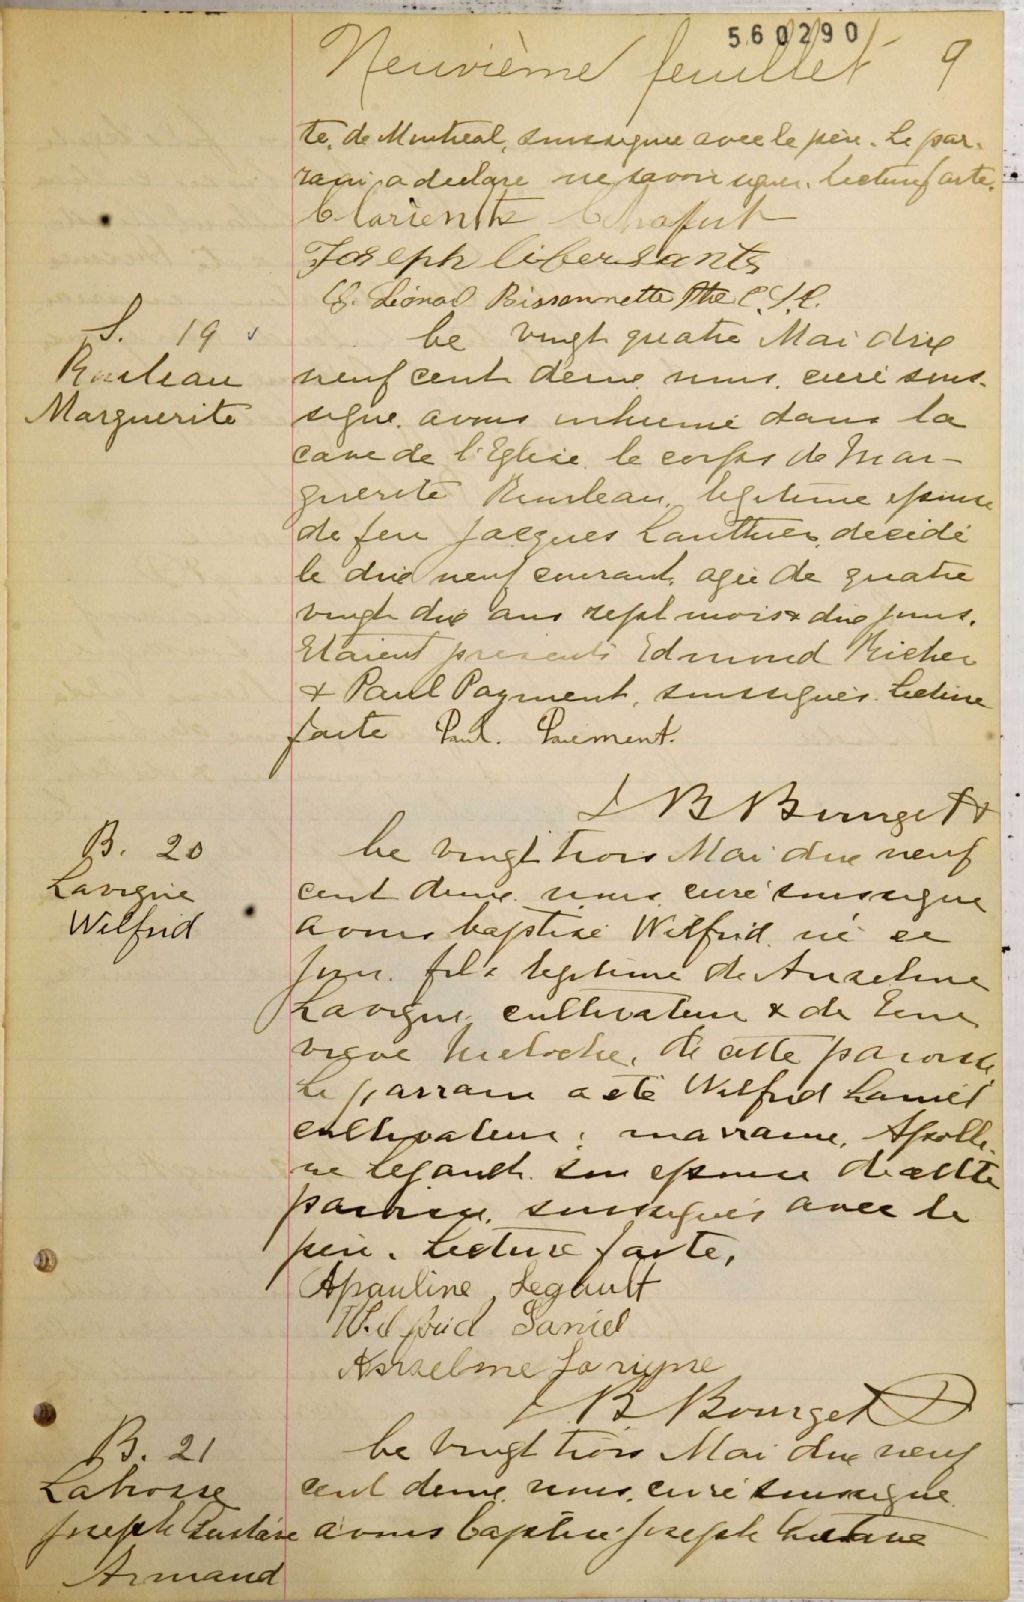 560290
Neuvième feuillet 9
te, de Montreal, soussignée avec le père. Le par-
rain a declaré ne savoir signer. Lecture faite.
Clarients
Joseph libersants
Lionol Bissonnette Ptre C.S.C.
S. 19
Marguerite
Le vingt quatre Mai dix
neuf cent douze, nous, curé sous-
signé, avons inhumé dans la
cave de l'Eglise le corps de Mar-
guerite légitime épouse
de feu Jacques Lauthier, decidé
le dix neuf courant, agée de quatre
vingt dix ans sept mois & dix jours.
Etaient presents Edmond Richer
& Paul Payment, soussignés. Lecture
faite Paul. Paiement.
J B Bourget Ptre
B. 20
Lavigne
Wilfrid
Le vingt trois Mai dix neuf
cent douze, nous, curé soussigné
avons baptisé Wilfrid, né ce
jour, fils légitime de Anselme
Lavigne, cultivateur & de Gene
vieve Meloche, de cette paroisse.
Le parrain a été Wilfrid Daniel
cultivateur; marraine, Apolli-
ne Legault son épouse de cette
paroisse, soussignés avec le
père. Lecture faite.
Apauline Legault
Wilfrid Daniel
Anselme Lavigne
J B Bourget
B. 21
Labrosse
Joseph Gustave
Armand
Le vingt trois Mai dix neuf
cent douze, nous, curé soussigné
avons baptisé Joseph Gustave